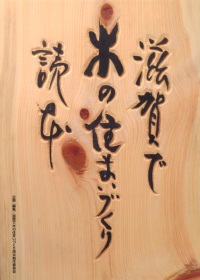 滋賀で
木の住まいづくり
読本